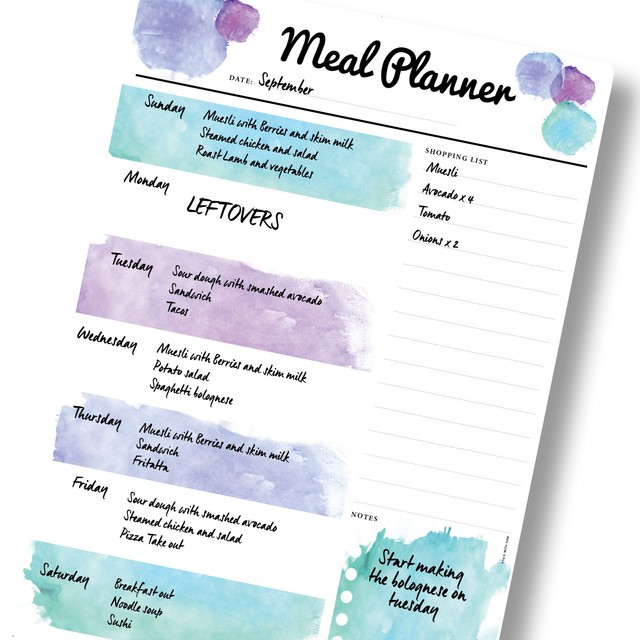 Meal Planner
DATE: September
Sunday
Muesli with Berries and skim milk
Steamed chicken and salad
Roast Lamb and vegetables
Monday
LEFTOVERS
Tuesday
Sour dough with smashed avocado
Sandwich
Tacos
Wednesday
Muesli with Berries and skim milk
Potato salad
Spaghetti bolognese
Thursday
Muesli with Berries and skim milk
Sandwich
Fritatta
Friday
Sour dough with smashed avocado
Steamed chicken and salad
Pizza Take out
Saturday
Breakfast out
Noodle soup
Sushi
SHOPPING LIST
Muesli
Avocado x 4
Tomato
Onions x 2
NOTES
Start making
the bolognese on
tuesday